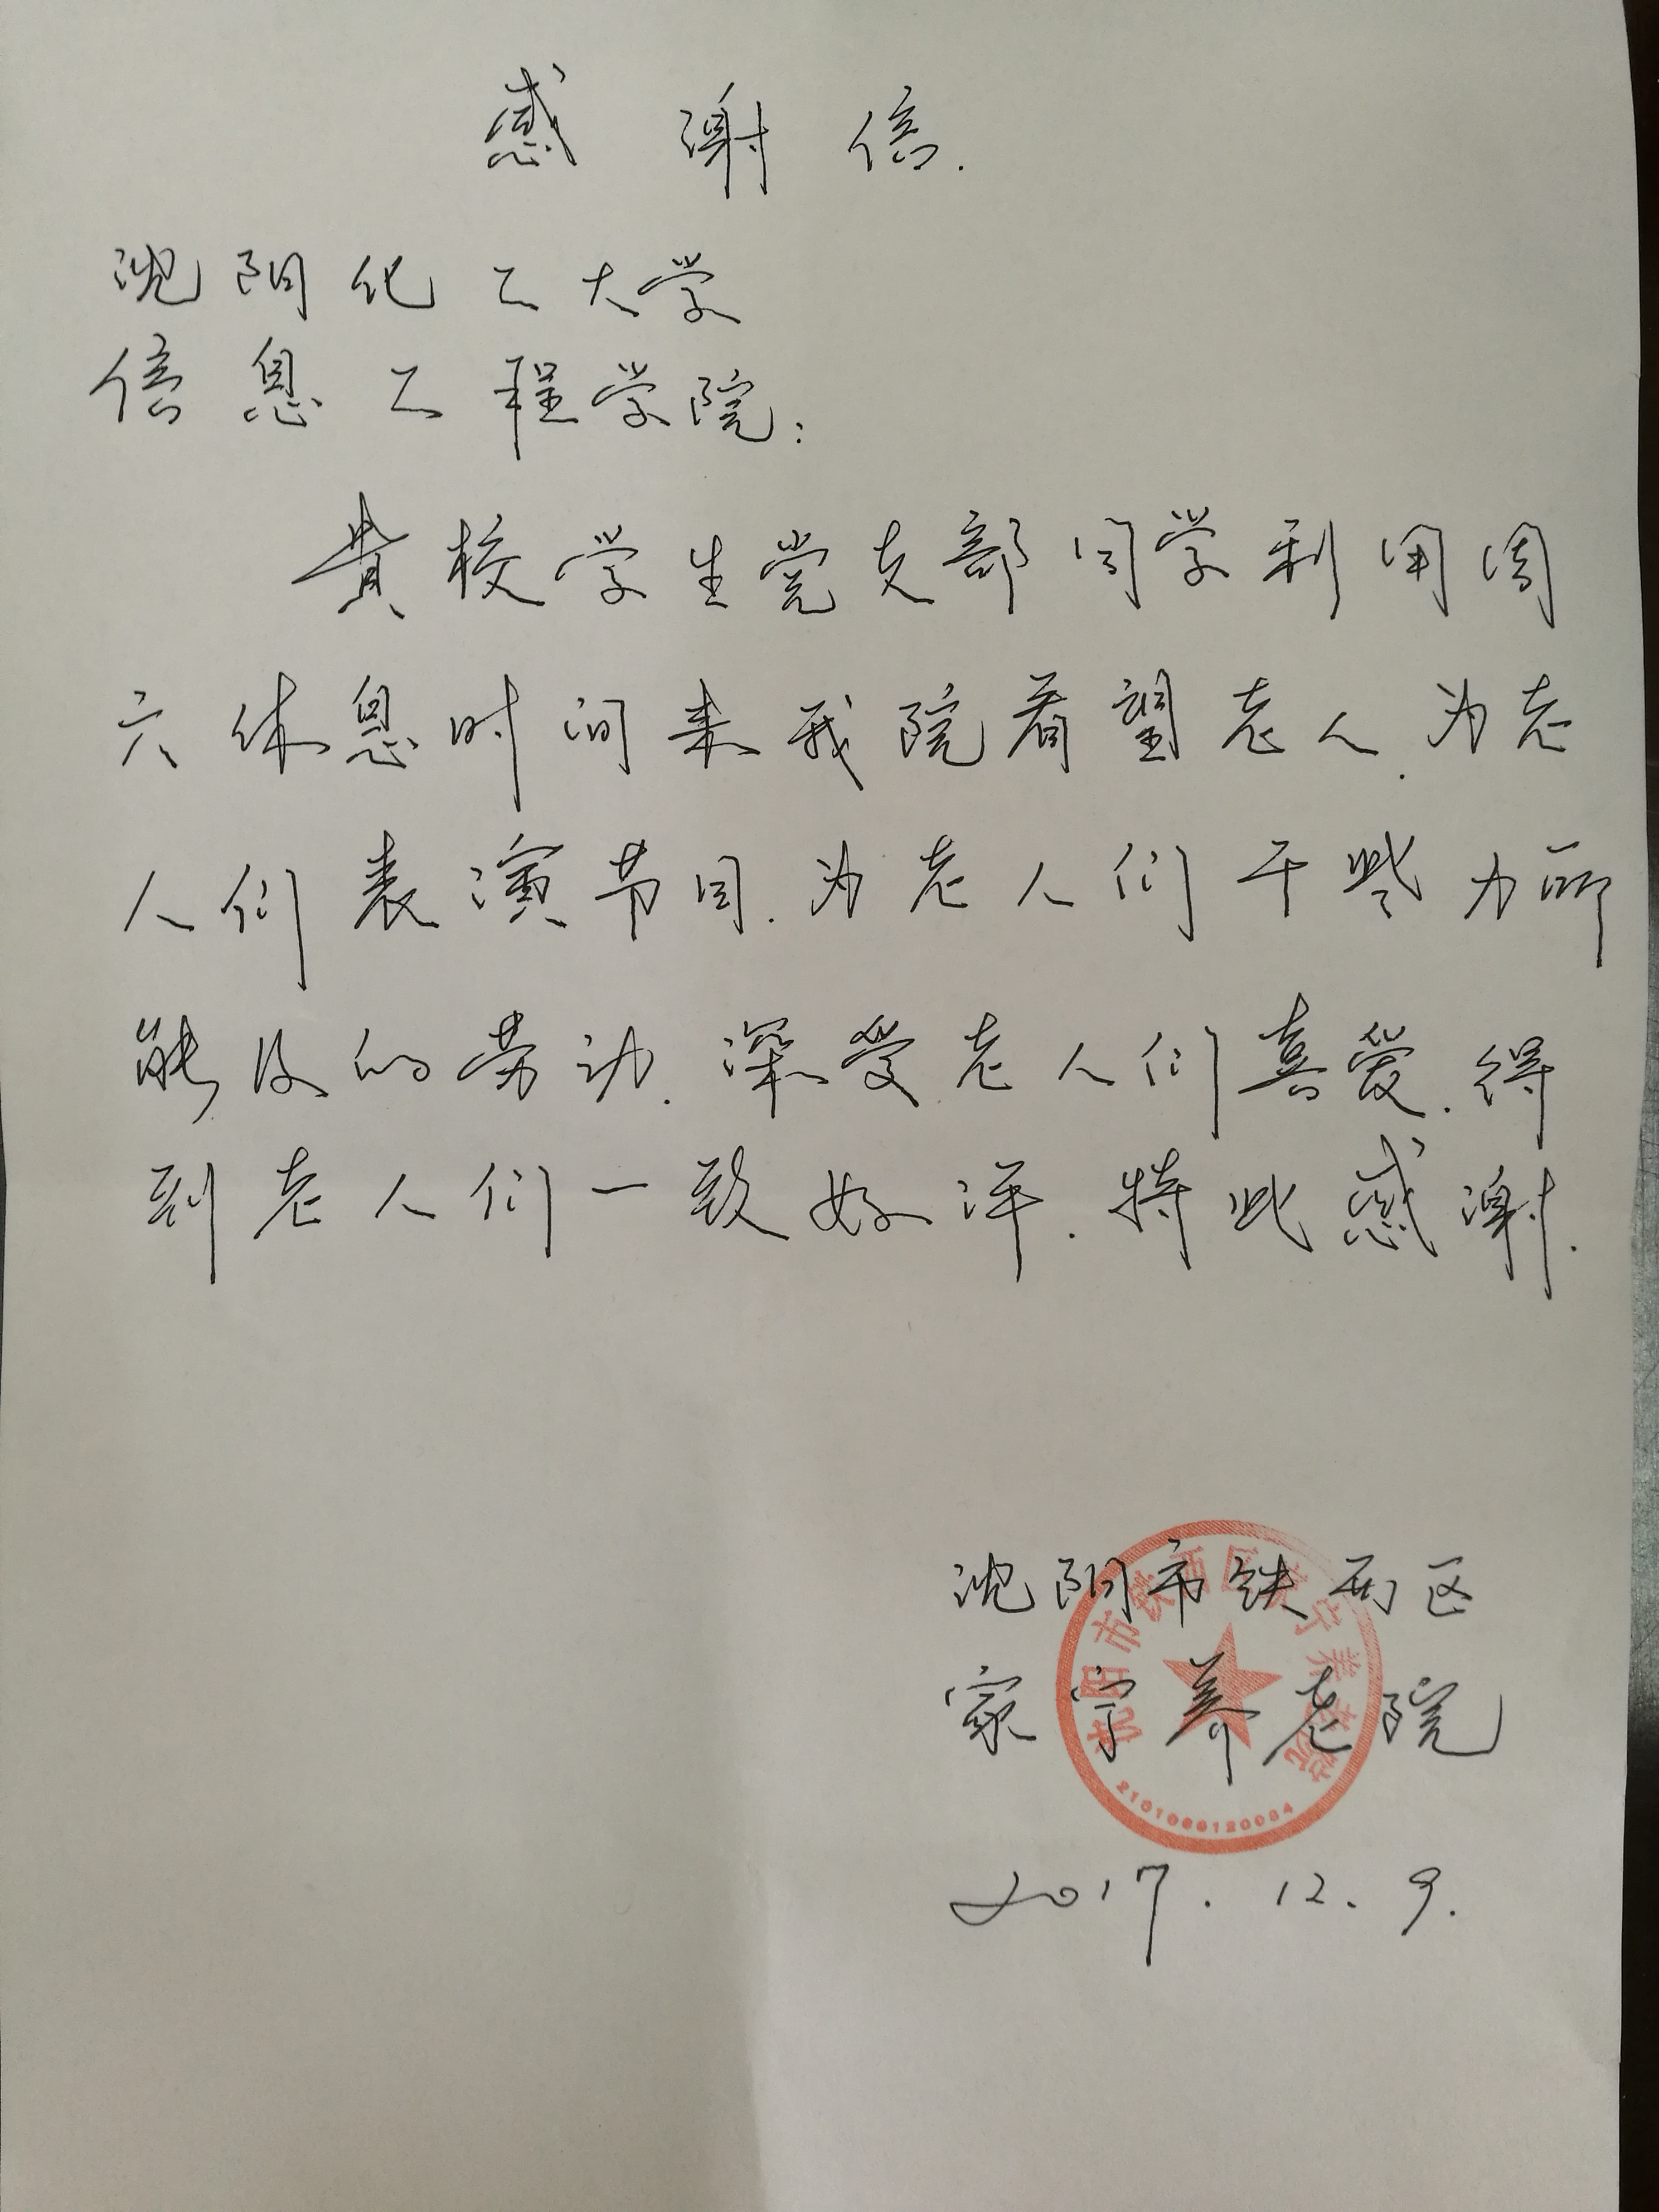 感谢信.
沈阳化工大学
信息工程学院:
贵校学生党支部同学利用周
六休息时间来我院看望老人.为老
人们表演节目.为老人们干些力所
能及的劳动.深受老人们喜爱.得
到老人们一致好评.特此感谢.
沈阳市铁西区
家宁养老院
2017.12.9.